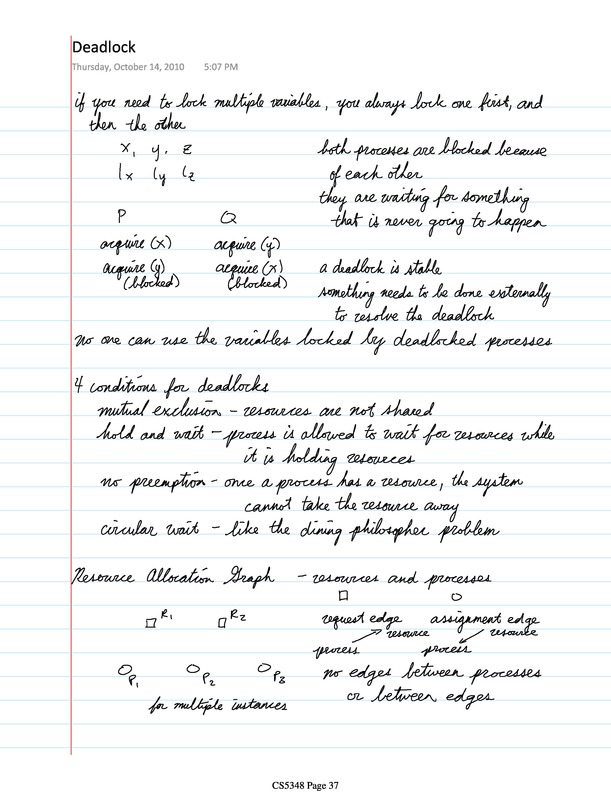 Deadlock
Thursday, October 14, 2010 5:07 PM
if you need to lock multiple variables, you always lock one first, and
then the other
x, y, z
lx ly lz
both processes are blocked because
of each other
they are waiting for something
that is never going to happen
P Q
acquire (x) acquire (y)
acquire (y) acquire (x)
(blocked) (blocked)
a deadlock is stable
something needs to be done externally
to resolve the deadlock
no one can use the variables locked by deadlocked processes
4 conditions for deadlocks
mutual exclusion - resources are not shared
hold and wait - process is allowed to wait for resources while
it is holding resources
no preemption - once a process has a resource, the system
cannot take the resource away
circular wait - like the dining philosopher problem
Resource Allocation Graph - resources and processes
R1 R2
request edge assignment edge
resource resource
process process
P1 P2 P3
no edges between processes
or between edges
for multiple instances
CS5348 Page 37